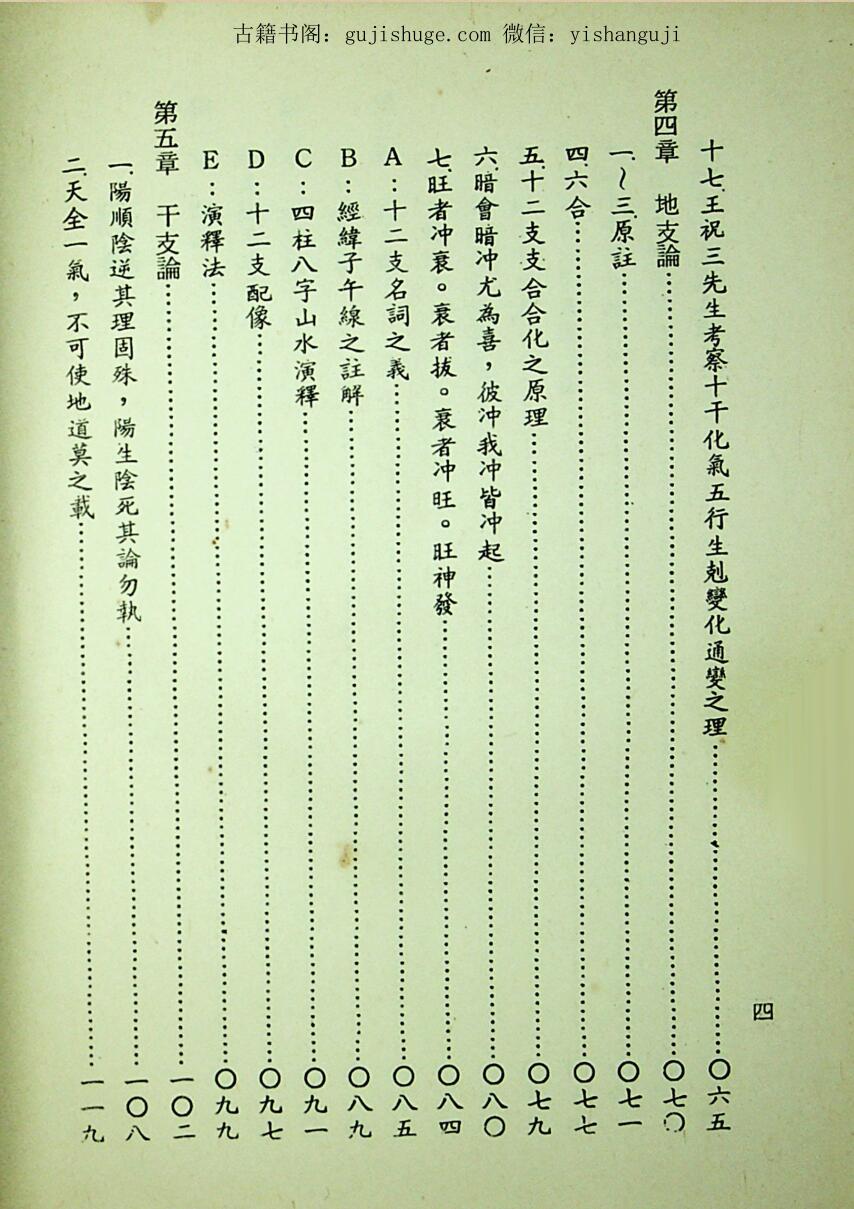 古籍书阁：gujishuge.com 微信：yishanguji
四
十七.王祝三先生考察十干化氣五行生剋變化通變之理……〇六五
第四章　地支論……〇七〇
一.～三.原註……〇七一
四.六合……〇七七
五.十二支支合合化之原理……〇七九
六.暗會暗冲尤為喜，彼冲我冲皆冲起……〇八〇
七.旺者冲衰。衰者拔。衰者冲旺。旺神發……〇八四
A：十二支名詞之義……〇八五
B：經緯子午線之註解……〇八九
C：四柱八字山水演釋……〇九一
D：十二支配像……〇九七
E：演釋法……〇九九
第五章　干支論……一〇二
一.陽順陰逆其理固殊，陽生陰死其論勿執……一〇八
二.天全一氣，不可使地道莫之載……一一九